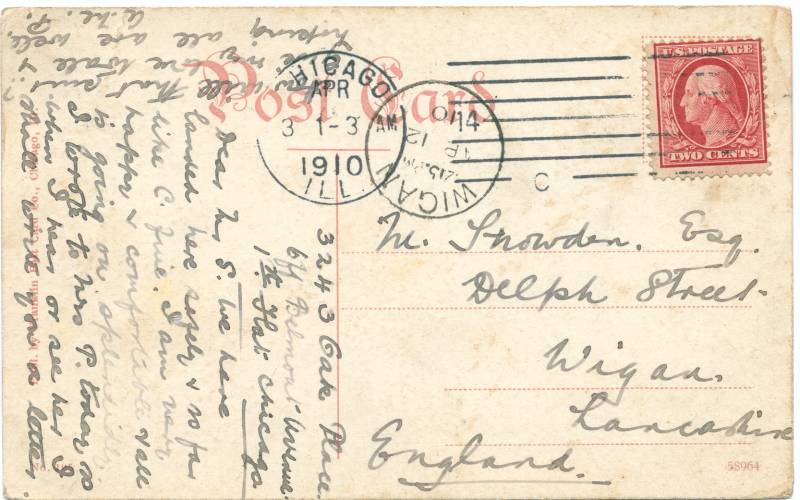 Post Card
CHICAGO
APR
3 1-3 AM
1910
ILL
WIGAN
12 15 PM
AP 12
10
14
C
U.S. POSTAGE
TWO CENTS
M. Snowden, Esq.
Delph Street
Wigan.
Lancashire
England.
3243 Oak Place
off Belmont Avenue
1st Flat Chicago
Dear Mrs S. We have
landed here safely & so far
like C. fine. I am very
happy & comfortable & all
is going on splendidly
I wrote to Mrs P. today so
when I hear or see her I
shall write you a letter.
that aunt &
love to all &
hoping
all are well.
58964
No.